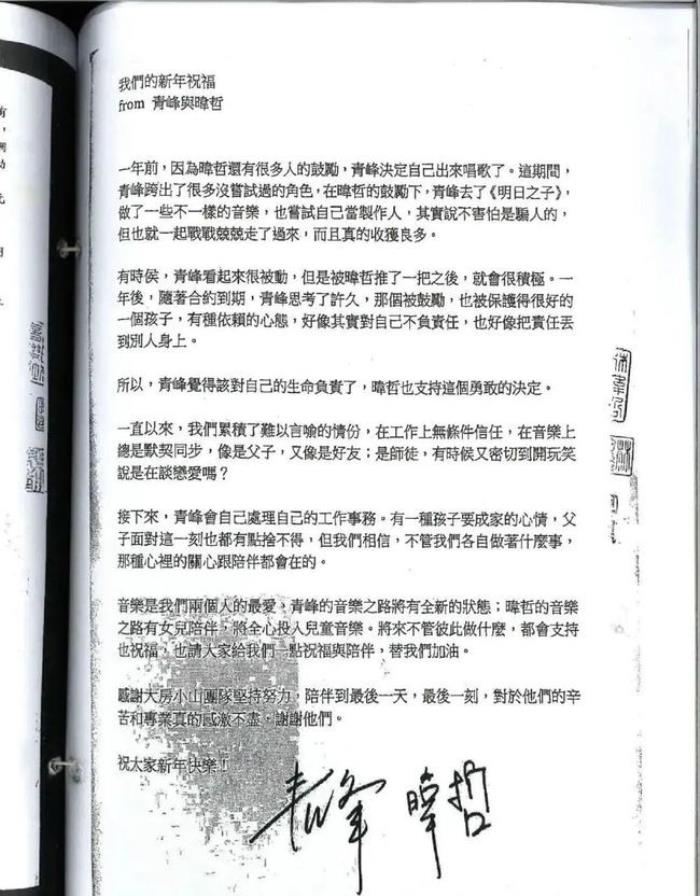 我們的新年祝福
from 青峰與暐哲
一年前，因為暐哲還有很多人的鼓勵，青峰決定自己出來唱歌了。這期間，
青峰跨出了很多沒嘗試過的角色，在暐哲的鼓勵下，青峰去了《明日之子》，
做了一些不一樣的音樂，也嘗試自己當製作人，其實說不害怕是騙人的，
但也就一起戰戰兢兢走了過來，而且真的收獲良多。
有時侯，青峰看起來很被動，但是被暐哲推了一把之後，就會很積極。一
年後，隨著合約到期，青峰思考了許久，那個被鼓勵，也被保護得很好的
一個孩子，有種依賴的心態，好像其實對自己不負責任，也好像把責任丟
到別人身上。
所以，青峰覺得該對自己的生命負責了，暐哲也支持這個勇敢的決定。
一直以來，我們累積了難以言喻的情份，在工作上無條件信任，在音樂上
總是默契同步，像是父子，又像是好友；是師徒，有時候又密切到開玩笑
說是在談戀愛嗎？
接下來，青峰會自己處理自己的工作事務。有一種孩子要成家的心情，父
子面對這一刻也都有點捨不得，但我們相信，不管我們各自做著什麼事，
那種心裡的關心跟陪伴都會在的。
音樂是我們兩個人的最愛，青峰的音樂之路將有全新的狀態；暐哲的音樂
之路有女兒陪伴，將全心投入兒童音樂。將來不管彼此做什麼，都會支持
也祝福，也請大家給我們一點祝福與陪伴，替我們加油。
感謝大房小山團隊堅持努力，陪伴到最後一天，最後一刻，對於他們的辛
苦和專業真的感激不盡，謝謝他們。
祝大家新年快樂！
青峰 暐哲